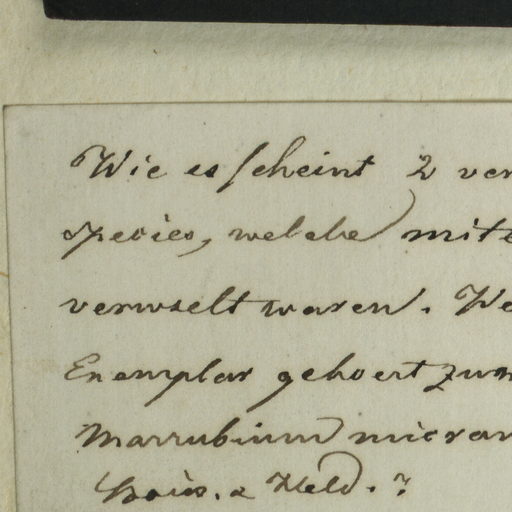 Wie es scheint 2 ver
species, welche mite
verwselt waren. We
Exemplar gehoert zum
Marrubium micran
Boiss. & Held. ?